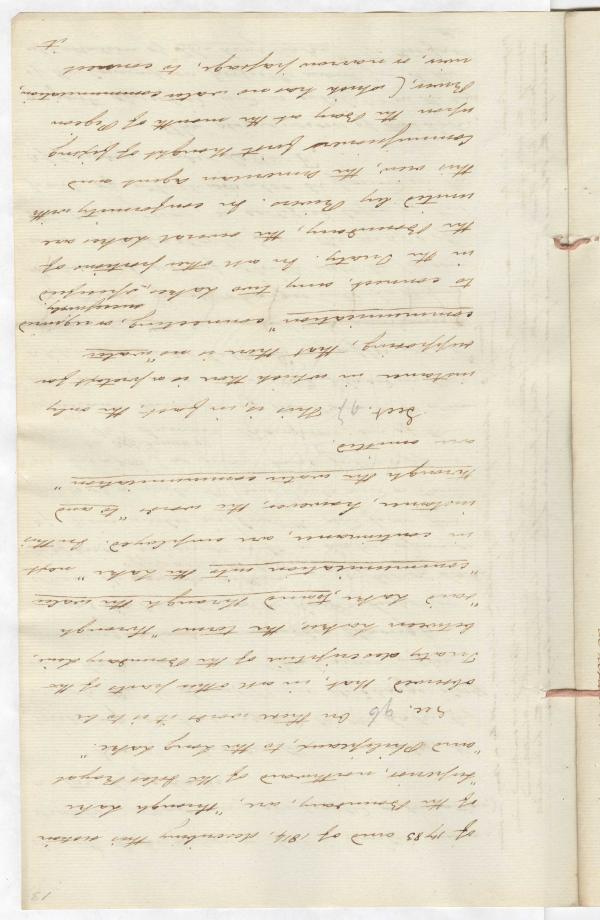 13
of 1783 and of 1814, describing this section
of the Boundary, are, "through Lake
"Superior, northward of the Isles Royal
"and Philipeaux, to the Long Lake."
Sec. 96 On these words it is to be
observed, that, in all other parts of the
Treaty description of the Boundary line,
between Lakes, the terms "through
"said Lake, and through the water
"communication into the Lake" next
in continuance, are employed. In this
instance, however, the words "to and
through the water communication"
are omitted.
Sect. 97 This is, in fact, the only
instance in which there is a pretext for
supposing, that there is no "water
communication" connecting, or required
necessarily
to connect, any two Lakes, specified
in the Treaty. In all other portions of
the Boundary, the several Lakes are
united by Rivers. In conformity with
this view, the American Agent and
Commissioners first thought of fixing
upon the Bay at the mouth of Pigeon
River, (which has no water communication,
river, or narrow passage, to connect
it